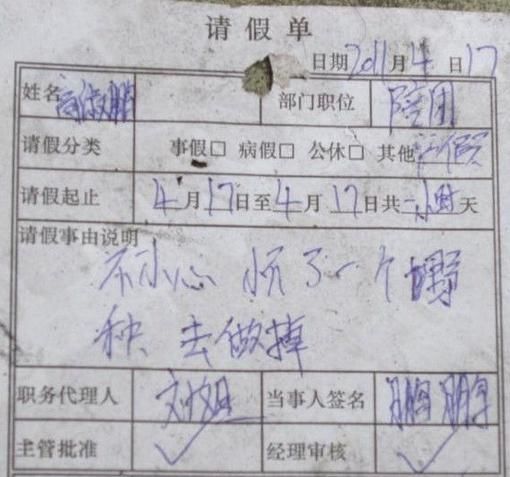 请假单
日期2011月4日17
姓名 部门职位 陪团
请假分类 事假□ 病假□ 公休□ 其他
请假起止 4月17日至4月17日共一小时天
请假事由说明
不小心怀了一个野
种 去做掉
职务代理人 刘姐 当事人签名
主管批准 ✓ 经理审核 ✓